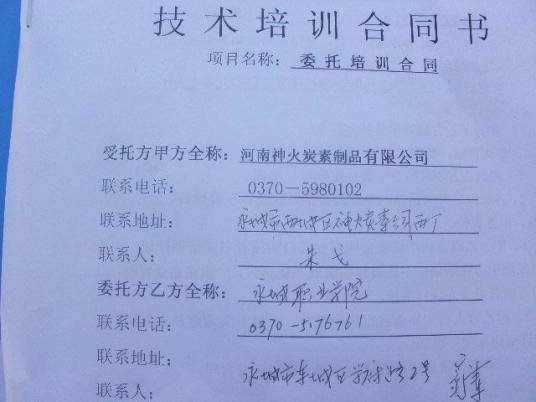 技术培训合同书
项目名称：委托培训合同
受托方甲方全称：河南神火炭素制品有限公司
联系电话： 0370—5980102
联系地址： 永城市西城区神火炭素公司西厂
联系人： 朱戈
委托方乙方全称： 永城职业学院
联系电话： 0370-5176761
联系地址： 永城市东城区学府路2号
联系人：